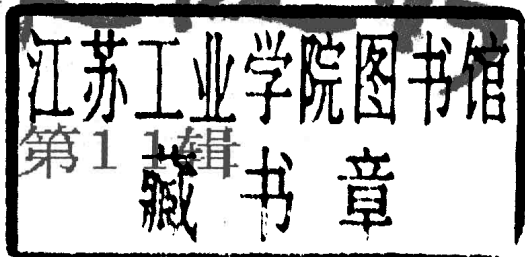 江苏工业学院图书馆
第11辑
藏书章